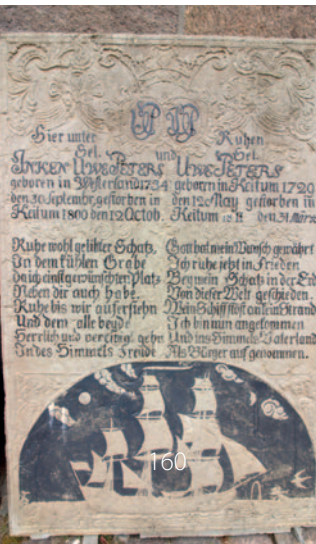 Hier unter Ruhen
Sel. und Sel.
INKEN UWE PETERS UWE PETERS
geboren in Westerland 1734 geboren in Keitum 1729
den 30 Septembr, gestorben in den 12 May gestorben in
Keitum den 12 Octob. Keitum den 31 März
Ruhe wohl geliebter Schatz,
In dem kühlen Grabe
Da ich einst gewünschten Platz
Neben dir auch habe.
Ruhe bis wir auferstehn
Und dem alle beyde
Herrlich und vereinigt gehn
In des Himmels Freude
Gott hat mein Wunsch gewährt
Ich ruhe jetzt in Frieden
Bey mein Schatz in der Erd
Von dieser Welt geschieden.
Mein Schiff stöst an den Strand
Ich bin nun angekommen
Und ins Himmels Vaterland
Als Bürger aufgenommen.
160